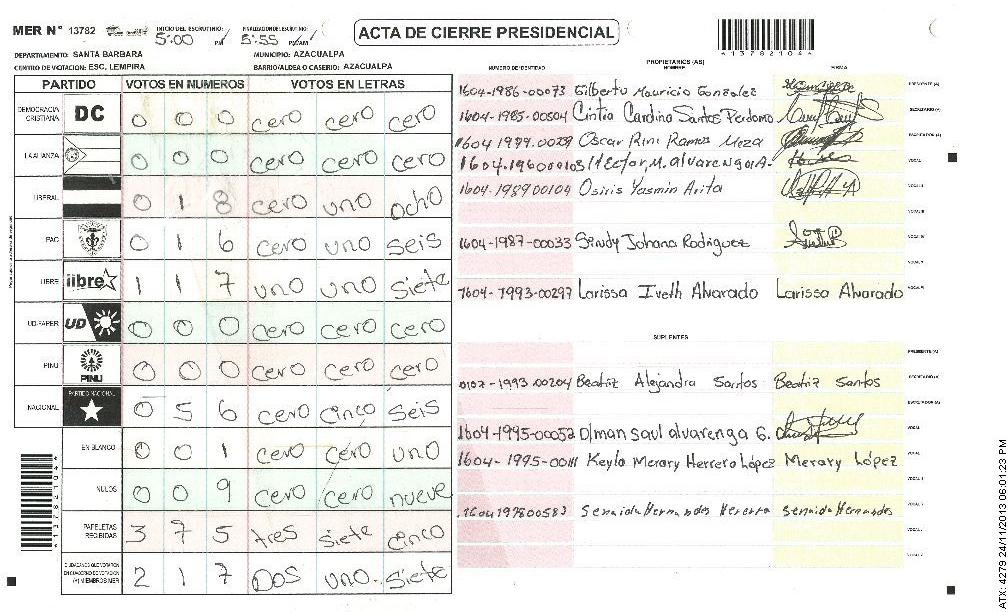 MER N° 13782 INICIO DEL ESCRUTINIO: 5:00 PM FINALIZACION ESCRUTINIO: 5:55 PM/AM
ACTA DE CIERRE PRESIDENCIAL
4137821044
DEPARTAMENTO: SANTA BARBARA MUNICIPIO: AZACUALPA
CENTRO DE VOTACION: ESC. LEMPIRA BARRIO/ALDEA O CASERIO: AZACUALPA
PARTIDO VOTOS EN NUMEROS VOTOS EN LETRAS
DEMOCRACIA CRISTIANA DC 0 0 0 cero cero cero
LA ALIANZA 0 0 0 cero cero cero
LIBERAL 0 1 8 cero uno ocho
PAC 0 1 6 cero uno seis
LIBRE libre 1 1 7 uno uno siete
UD-FAPER UD 0 0 0 cero cero cero
PINU PINU 0 0 0 cero cero cero
NACIONAL PARTIDO NACIONAL 0 5 6 cero cinco seis
EN BLANCO 0 0 1 cero cero uno
NULOS 0 0 9 cero cero nueve
PAPELETAS RECIBIDAS 3 7 5 tres siete cinco
CIUDADANOS QUE VOTARON EN CUADERNO DE VOTACION (+) MIEMBROS MER 2 1 7 Dos uno. siete
PROPIETARIOS (AS)
NUMERO DE IDENTIDAD NOMBRE FIRMA
1604-1986-00073 Gilberto Mauricio Gonzalez PRESIDENTE (A)
1604-1985-00504 Cintia Carolina Santos Perdomo SECRETARIO (A)
1604 1979.0029 Oscar Rini Ramos Meza ESCRUTADOR (A)
1604.196000103 Hector, M. alvarenga A. VOCAL I
1604-1989 00104 Osiris Yasmin Arita VOCAL II
VOCAL III
1604-1987-00033 Sindy Johana Rodriguez VOCAL IV
VOCAL V
1604-1993-00297 Larissa Iveth Alvarado Larissa Alvarado VOCAL VI
SUPLENTES
PRESIDENTE (A)
0107-1993-00204 Beatriz Alejandra Santos Beatriz Santos SECRETARIO (A)
ESCRUTADOR (A)
1604-1995-00052 Dilman Saul alvarenga G. VOCAL
1604-1995-00111 Keyla Merary Herrera López Merary López VOCAL
1604197800583 Senaida Hernandes Hererra Senaida Hernandes
ATX: 4279 24/11/2013 06:01:23 PM